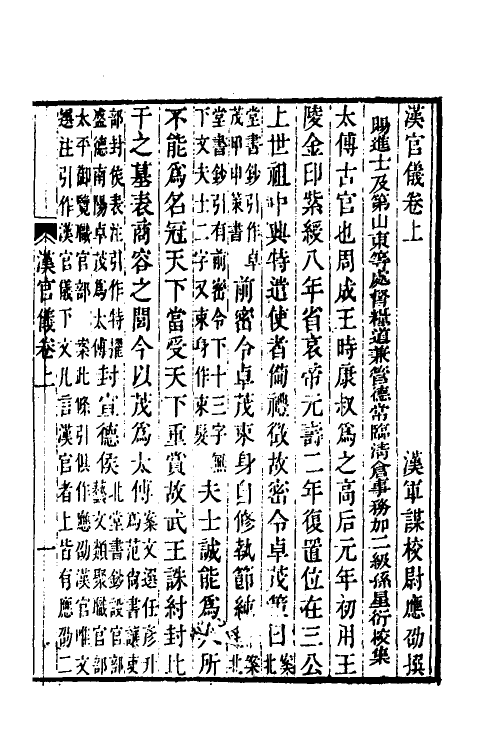 漢官儀卷上
漢軍謀校尉應劭撰
賜進士及第山東等處督糧道兼管德常臨清倉事務加二級孫星衍校集
太傅古官也周成王時康叔爲之高后元年初用王
陵金印紫綬八年省哀帝元壽二年復置位在三公
上世祖中興特遣使者備禮徵故密令卓茂策曰案北
堂書鈔引作卓茂卑中策書
前密令卓茂束身自修執節純
案北堂書鈔引有前密令下十三字無下文夫士二字又束身作束髮
夫士誠能爲人所
不能爲名冠天下當受天下重賞故武王誅紂封比
干之墓表商容之閭今以茂爲太傅
案文選任彥升爲范尚書讓吏部封侯表注引作特擢
封宣德侯
北堂書鈔設官部藝文類聚職官部太平御覽職官部
案此條引俱作應劭漢官唯文選注引作漢官儀下文凡言漢官者上皆有應劭二
漢官儀卷上
一